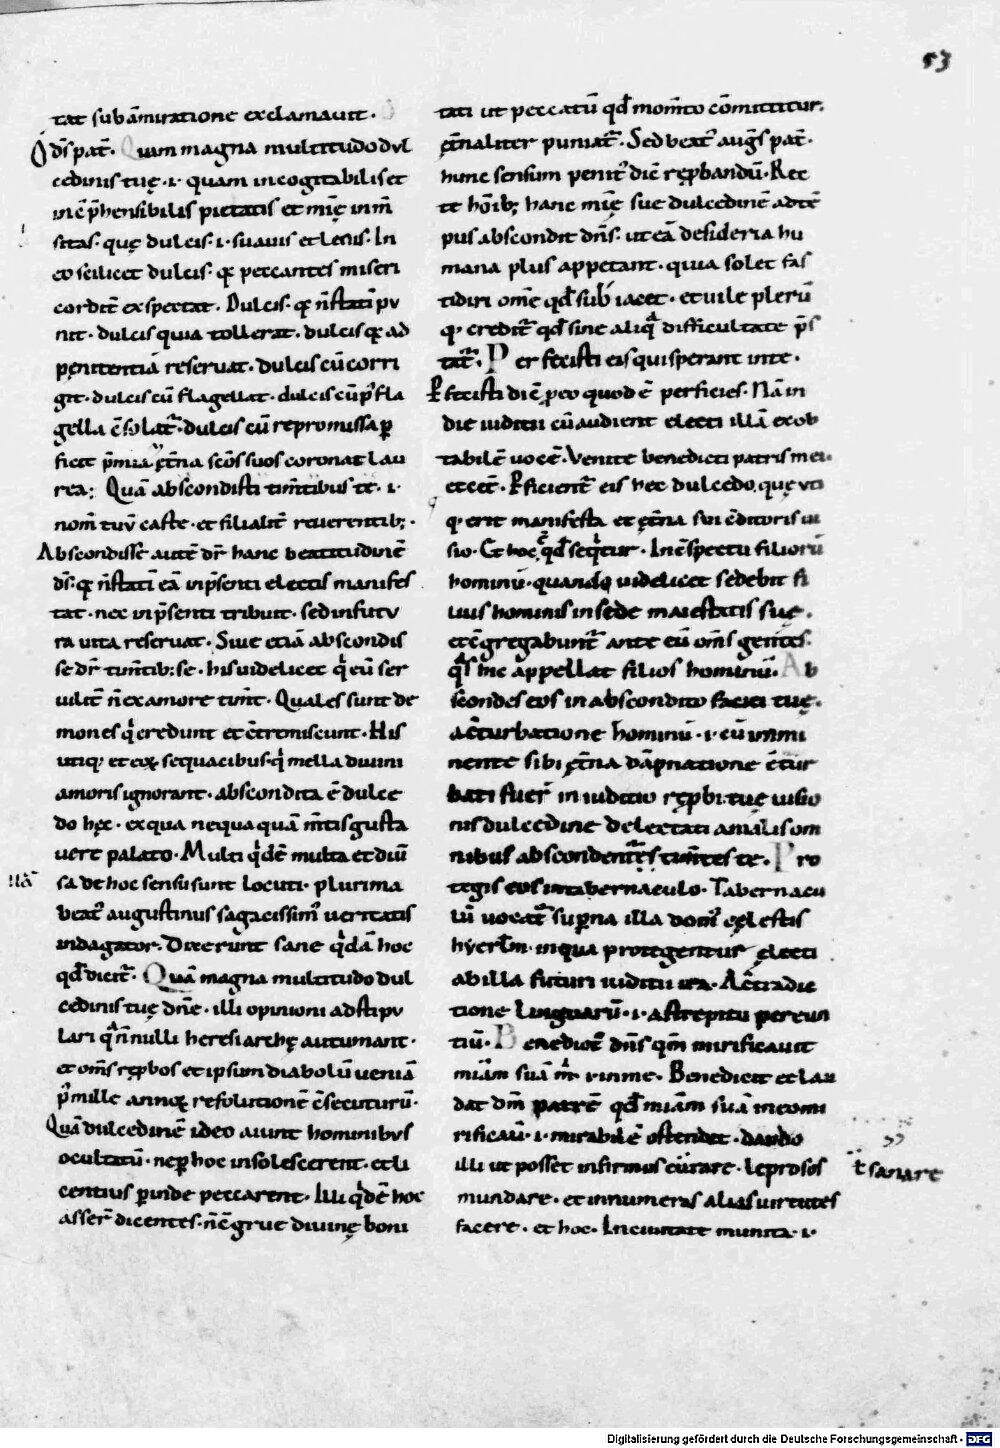 53
tat sub ām̄iratione exclamauit.
O ds̄ pat̄. Quam magna multitudo dul
cedinis tuę .i. quam incogitabilis et
incp̄hensibilis pietatis et mīę inm̄
sitas. quę dulcis .i. suauis et lenis. In
eo scilicet dulcis. qꝫ peccantes miseri
cordit̄ exspectat. Dulcis. qꝫ n̄ statī pu
nit. dulcis quia tollerat. dulcis qꝫ ad
penitentiā reseruat. dulcis cū corri
git. dulcis cū flagellat. dulcis cū p' fla
gella c̄solat̄. dulcis cū repromissa ꝑ
ficit p̄mia ęt̄na sc̄os suos coronat lau
rea; Quā abscondisti tim̄tibus te .i.
nom̄ tuū caste. et filialit̄ reuerentibꝫ.
Abscondisse autē dr̄ hanc beatitudinē
ds̄. qꝫ n̄ statī eā in p̄senti electis manifes
tat. nec in p̄senti tribuit. sed in futu
ra uita reseruat. Siue etiā abscondis
se dr̄ tim̄tibꝫ se. his uidelicet qͥ eū ser
uilit̄ n̄ ex amore tim̄t. Quales sunt de
mones qͥ credunt et c̄tremiscunt. His
utiqꝫ et eoꝝ sequacibus. qͥ mella diuini
amoris ignorant. abscondita ē dulce
do hęc. ex qua nequaquā m̄tis gusta
uere palato. Multi qͥdē multa et diū
uā
sa de hoc sensu sunt locuti. plurima
beat' augustinus sagacissim' ueritatis
indagator. Dixerunt sane qͥdā hoc
qd̄ dicit̄. Quā magna multitudo dul
cedinis tuę dn̄e. illi opinioni adstipu
lari qͣ n̄nulli heresiarchę autumant.
et om̄s rep̄bos et ipsum diabolū ueniā
p' mille annoꝝ resolutionē c̄secuturū.
Quā dulcedinē ideo aiunt hominibus
ocultatū. ne ꝑ hoc insolescerent. et li
centius ꝑinde peccarent. Illi qͥdē hoc
asser̄ dicentes. n̄ c̄grue diuinę boni
tati ut peccatū qd̄ mom̄to cōmittitur.
ęt̄naliter puniat̄. Sed beat' aug's pat̄.
hunc sensum penit' dic̄ rep̄bandū. Rec
te hōibꝫ hanc mīę sue dulcedinē ad tē
pus abscondit dn̄s. ut eā desideria hu
mana plus appetant. quia solet fas
tidiri om̄e qd̄ subiacet. et uile plerū
qꝫ credit̄ qd̄ sine aliqͣ difficultate p̄s
tat̄. Per fecisti eis qui sperant in te.
ꝑfecisti dic̄ pro quod ē perficies. Nā in
die iuditii cū audient electi illā exop
tabilē uocē. Venite benedicti patris mei.
et cet̄. ꝑficient̄ eis hec dulcedo. quę uti
qꝫ erit manifesta et ęt̄na sui c̄ditoris ui
sio. Et hoc ē qd̄ seqͥtur. In c̄spectu filiorū
hominū. quando uidelicet sedebit fi
lius hominis in sede maiestatis suę.
et c̄gregabunt̄ ante eū om̄s gentes.
qͦs hic appellat filios hominū. Ab
scondes eos in abscondito faciei tuę.
a c̄turbatione hominū .i. cū immi
nente sibi ęt̄na dāpnatione c̄tur
bati fuer̄ in iuditio rep̄bi. tuę uisio
nis dulcedine delectati a malis om
nibus abscondent̄ tim̄tes te. Pro
tegis eos in tabernaculo. Tabernacu
lū uocat̄ suꝑna illa dom' cęlestis
hyerl̄m. in qua protegentur electi
ab illa futuri iuditii ira. A c̄tradic
tione linguarū .i. a strepitu pereun
tiū. Benedict' dn̄s qm̄ mirificauit
miām suā m̄ .i. in me. Benedicit et lau
dat dm̄ patrē qd̄ miām suā in eo mi
rificau̅ .i. mirabilē ostendit. dando
illi ut posset infirmos curare. leprosos
t̄ sanare
mundare. et innumeras alias uirtutes
facere. et hoc. In ciuitate munita .i.
Digitalisierung gefördert durch die Deutsche Forschungsgemeinschaft · DFG